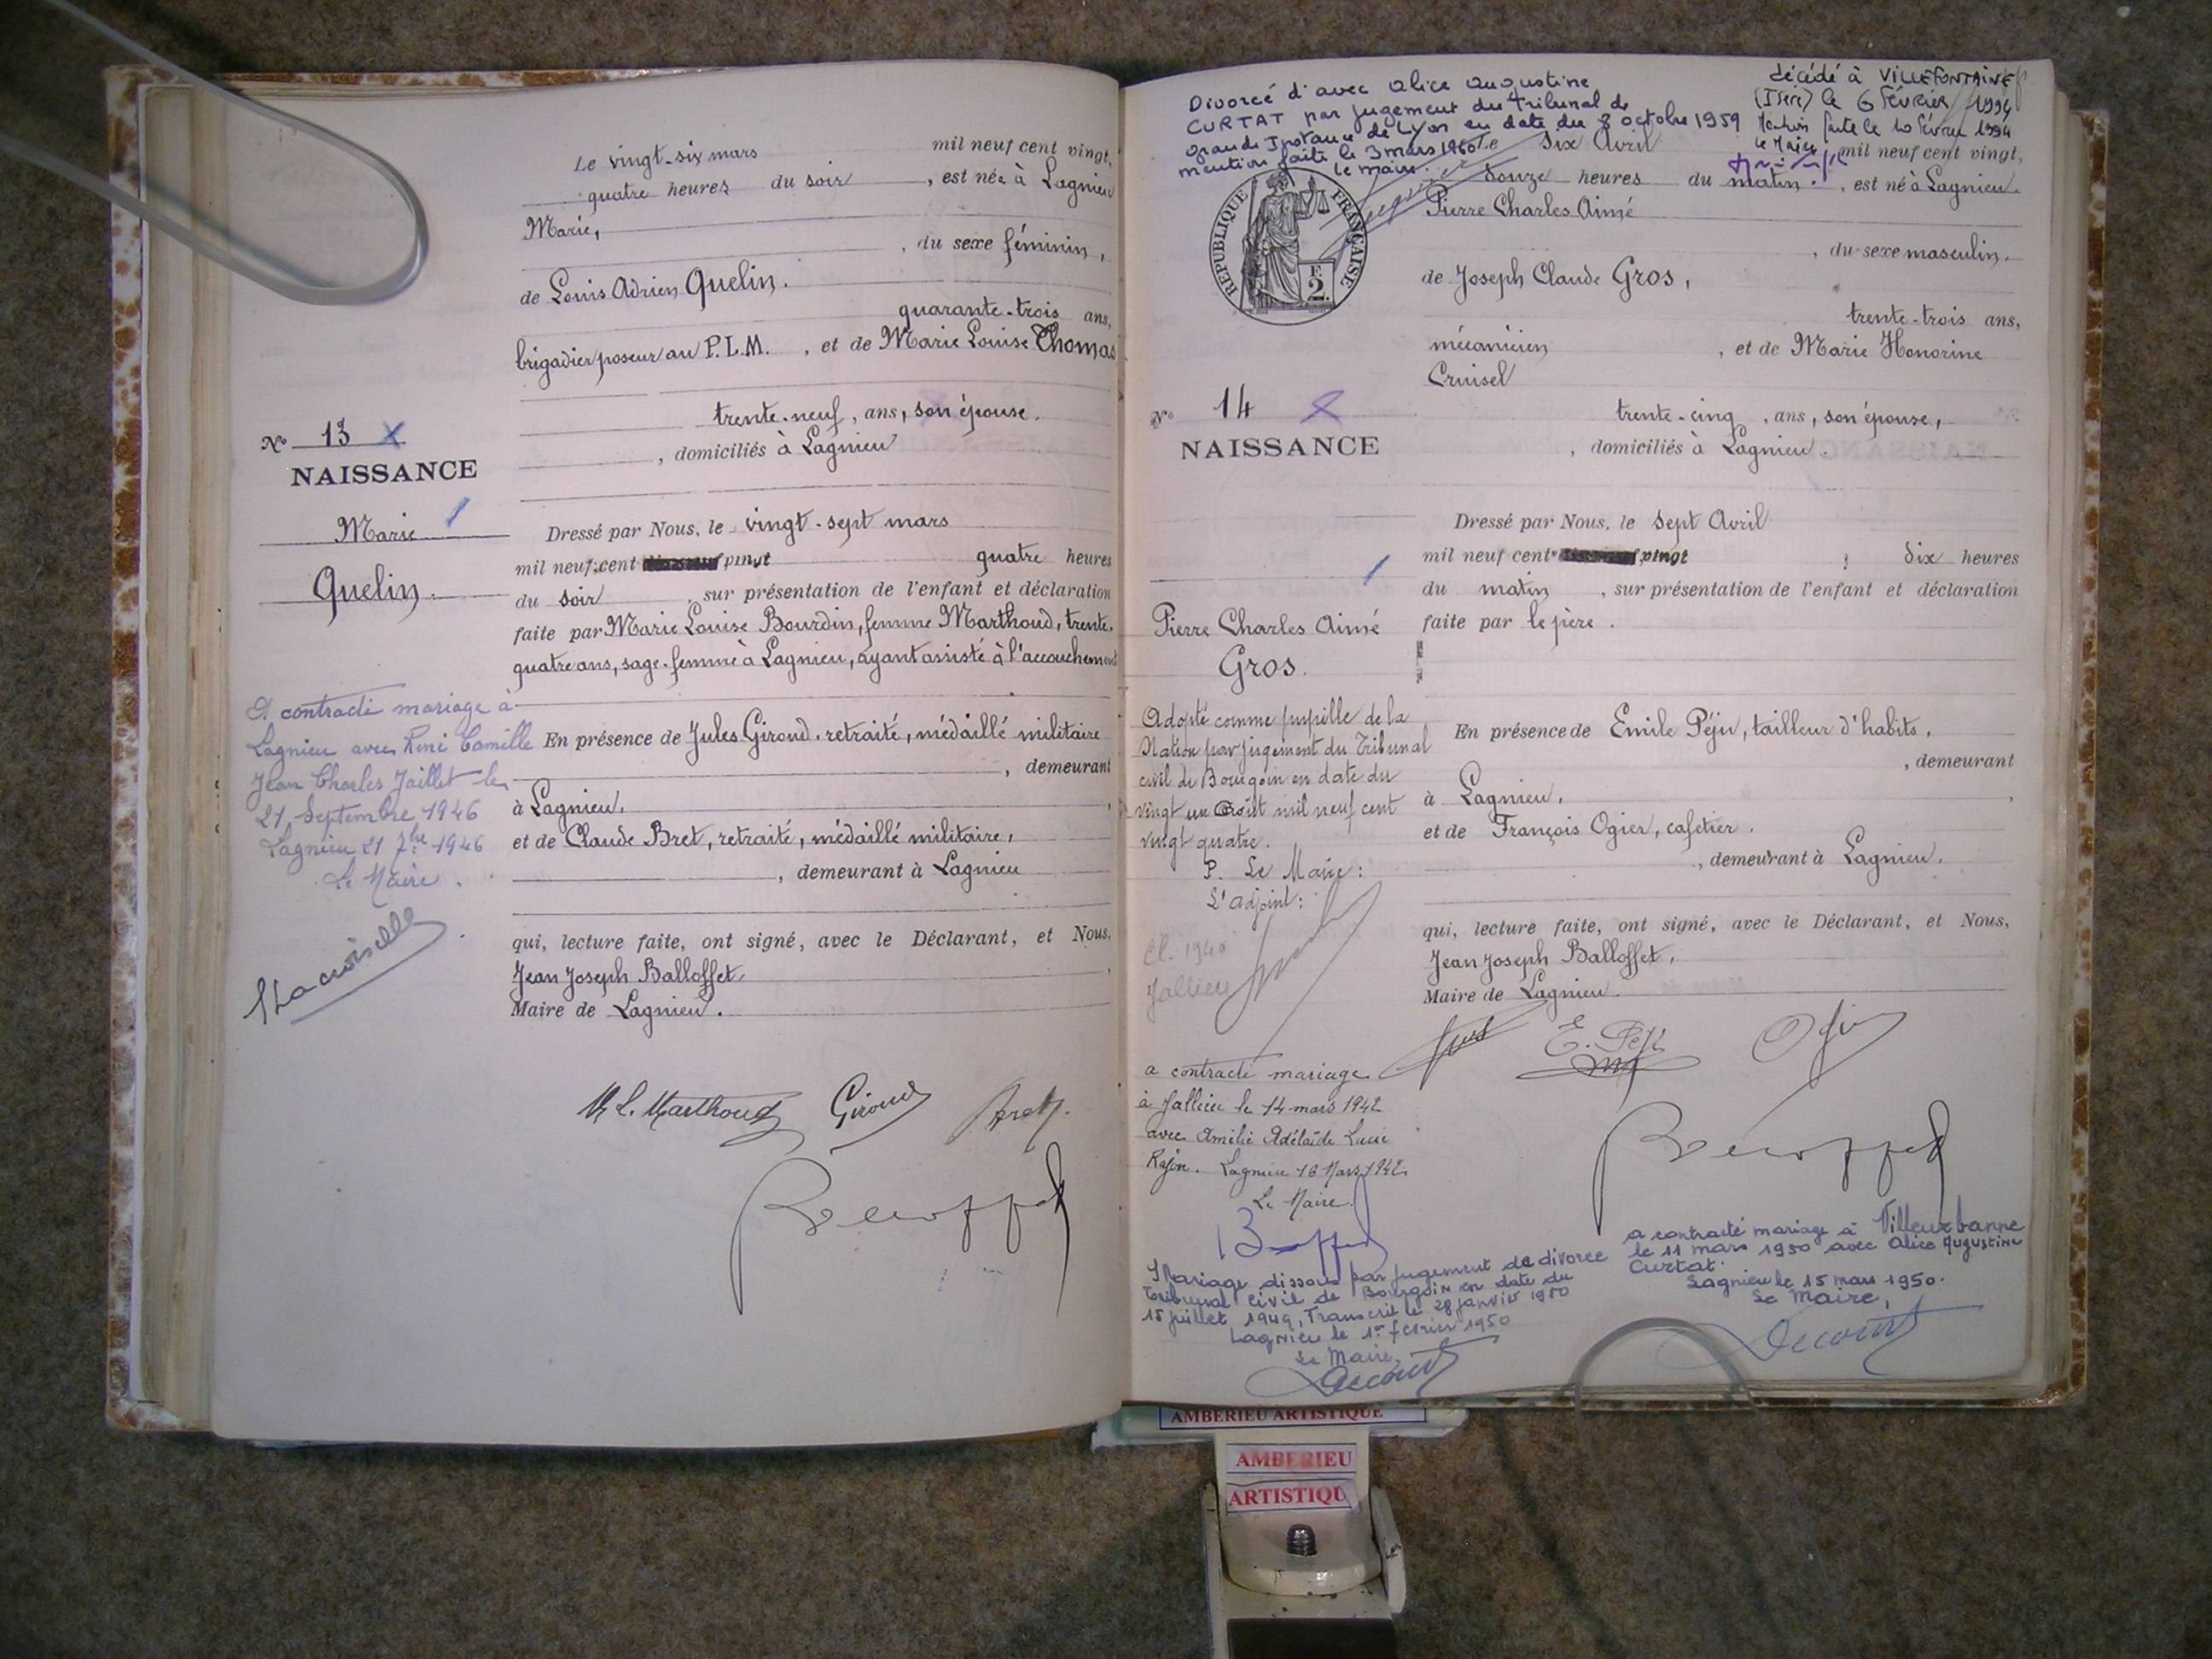 Le vingt-six mars mil neuf cent vingt,
quatre heures du soir, est née à Lagnieu
Marie,
, du sexe féminin,
de Louis Adrien Quelin.
quarante-trois ans,
brigadier poseur au P.L.M., et de Marie Louise Thomas
trente-neuf, ans, son épouse.
, domiciliés à Lagnieu
N° 13
NAISSANCE
Marie
Quelin.
Dressé par Nous, le vingt-sept mars
mil neuf cent vingt quatre heures
du soir, sur présentation de l'enfant et déclaration
faite par Marie Louise Bourdin, femme Marthoud, trente-
quatre ans, sage-femme à Lagnieu, ayant assisté à l'accouchement
En présence de Jules Giroud, retraité, médaillé militaire
, demeurant
à Lagnieu,
et de Claude Bret, retraité, médaillé militaire,
, demeurant à Lagnieu
qui, lecture faite, ont signé, avec le Déclarant, et Nous,
Jean Joseph Balloffet,
Maire de Lagnieu.
A contracté mariage à
Lagnieu avec René Camille
Jean Charles Jaillet le
21 Septembre 1946
Lagnieu 21 7bre 1946
Le Maire.
M L. Marthoud Giroud Bret
Divorcé d'avec Alice Augustine
CURTAT par jugement du Tribunal de
grande Instance de Lyon en date du 8 octobre 1959
mention faite le 3 mars 1960
le maire.
décédé à VILLEFONTAINE
(Isère) le 6 Février 1994
Mention faite le 10 février 1994
le Maire
Le Six Avril mil neuf cent vingt,
douze heures du matin., est né à Lagnieu.
Pierre Charles Aimé
RÉPUBLIQUE FRANÇAISE
E
2.
, du sexe masculin.
de Joseph Claude Gros,
trente-trois ans,
mécanicien, et de Marie Honorine
Cruisel
trente-cinq, ans, son épouse,
, domiciliés à Lagnieu.
N° 14
NAISSANCE
Pierre Charles Aimé
Gros.
Dressé par Nous, le sept Avril
mil neuf cent vingt, dix heures
du matin, sur présentation de l'enfant et déclaration
faite par le père.
En présence de Emile Péju, tailleur d'habits,
, demeurant
à Lagnieu,
et de François Ogier, cafetier.
, demeurant à Lagnieu.
qui, lecture faite, ont signé, avec le Déclarant, et Nous,
Jean Joseph Balloffet,
Maire de Lagnieu.
Adopté comme pupille de la
Nation par jugement du Tribunal
civil de Bourgoin en date du
vingt un Août mil neuf cent
vingt quatre.
P. Le Maire:
L'adjoint:
Cl. 1940
Jallieu
a contracté mariage
à Jallieu le 14 mars 1942
avec Amélie Adélaïde Lucie
Rajon. Lagnieu 16 Mars 1942
Le Maire.
Mariage dissous par jugement de divorce
Tribunal Civil de Bourgoin en date du
15 juillet 1949, Transcrit le 28 janvier 1950
Lagnieu le 1er février 1950
Le Maire,
a contracté mariage à Villeurbanne
le 11 mars 1950 avec Alice Augustine
Curtat.
Lagnieu le 15 mars 1950.
Le Maire,
AMBERIEU ARTISTIQUE
AMBERIEU
ARTISTIQU